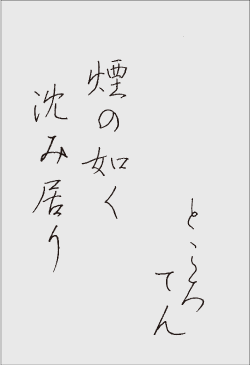 ところ
てん
煙の如く
沈み居り